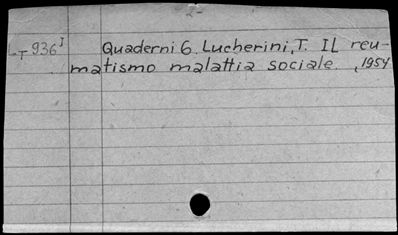 -2-
LT 936 I Quaderni 6. Lucherini, T. IL reu-
matismo malattia sociale. ,1954